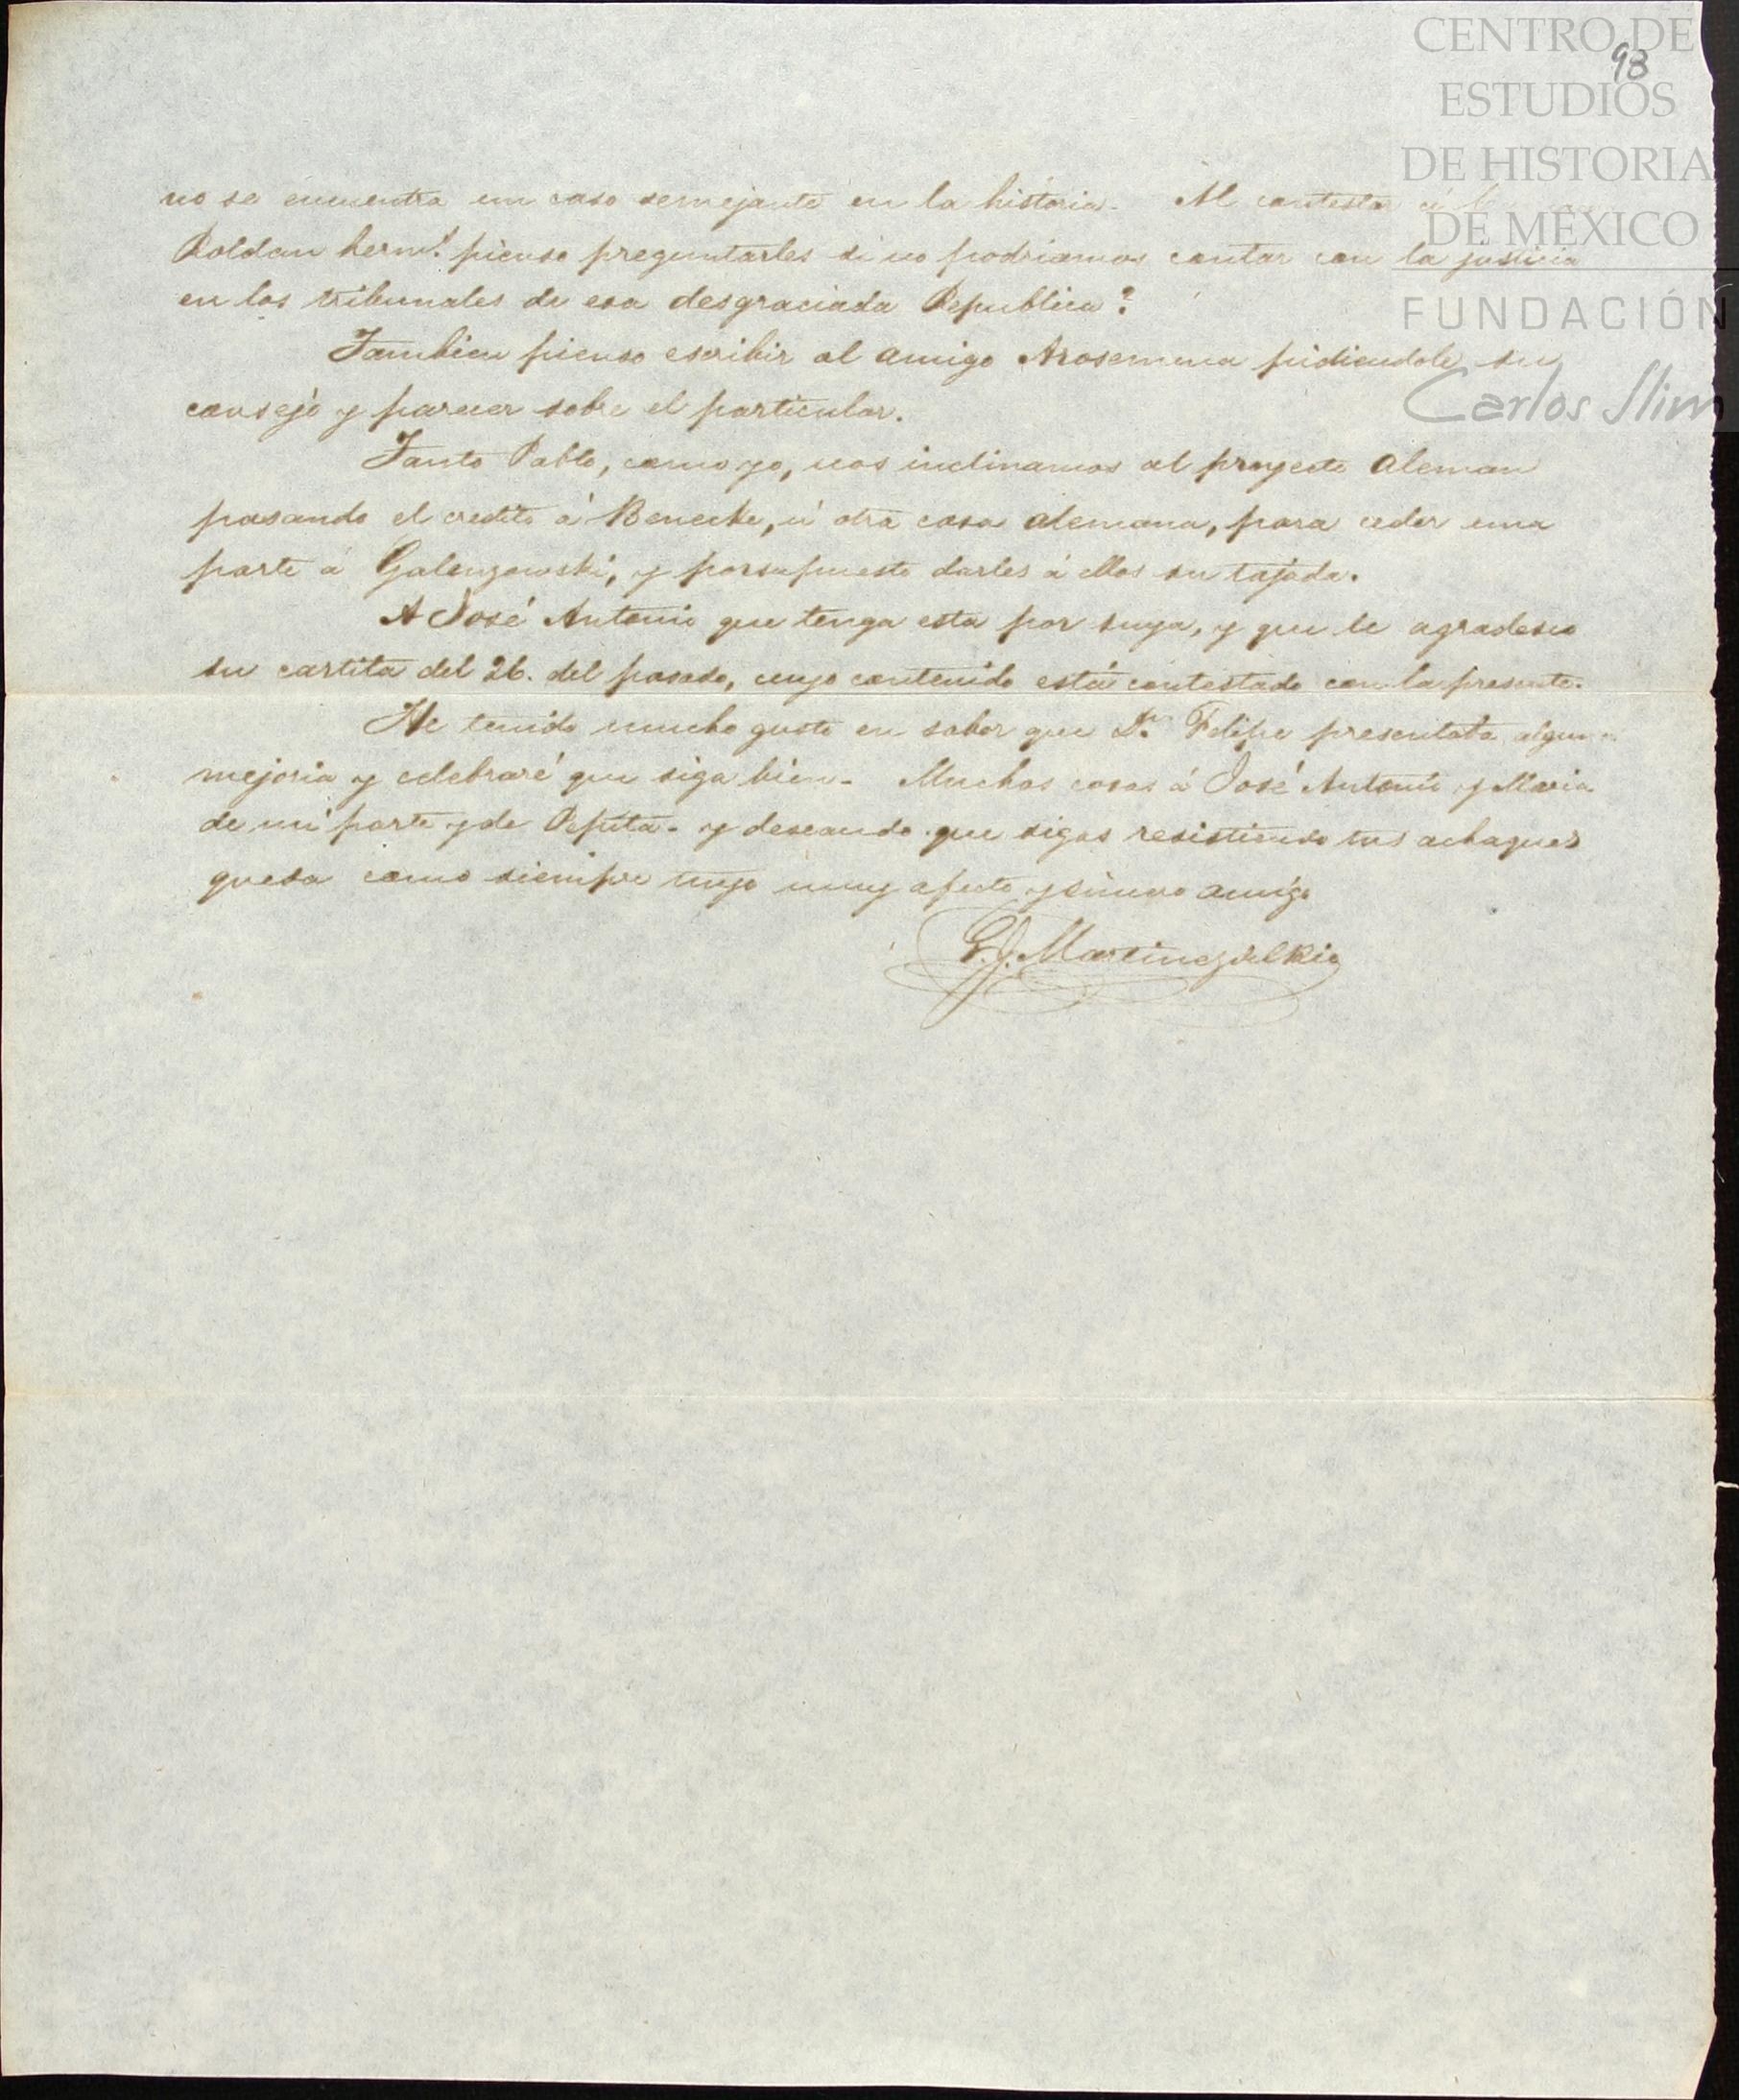 98
CENTRO DE
ESTUDIOS
DE HISTORIA
DE MÉXICO
FUNDACIÓN
Carlos Slim
no se encuentra un caso semejante en la historia. Al contestar á
Roldan herm.ˢ pienso preguntarles si no podriamos contar con la justicia
en los tribunales de esa desgraciada Republica?
Tambien pienso escribir al amigo Arosemena pidiendole su
consejo y parecer sobre el particular.
Tanto Pablo, como yo, nos inclinamos al proyecto Aleman
pasando el credito á Benecke, ú otra casa alemana, para ceder una
parte á Galenzowski, y porsupuesto darles á ellos su tajada.
A José Antonio que tenga esta por suya, y que le agradesco
su cartita del 26. del pasado, cuyo contenido está contestado con la presente.
He tenido mucho gusto en saber que Dⁿ. Felipe presentata alguna
mejoria y celebraré que siga bien. Muchas cosas á José Antonio y Maria
de mi parte y de Pepita. y deseando que sigas resistiendo tus achaques
queda como siempre tuyo muy afecto y sincero amigo
G. J. Martinez del Rio